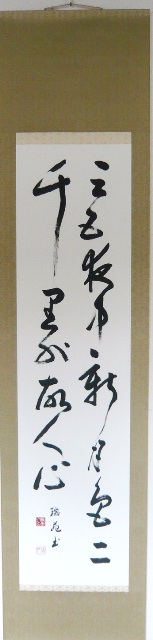 三五夜中新月色二
千里外故人心